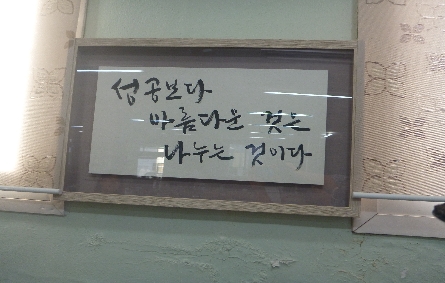 성공보다
아름다운 것은
나누는 것이다